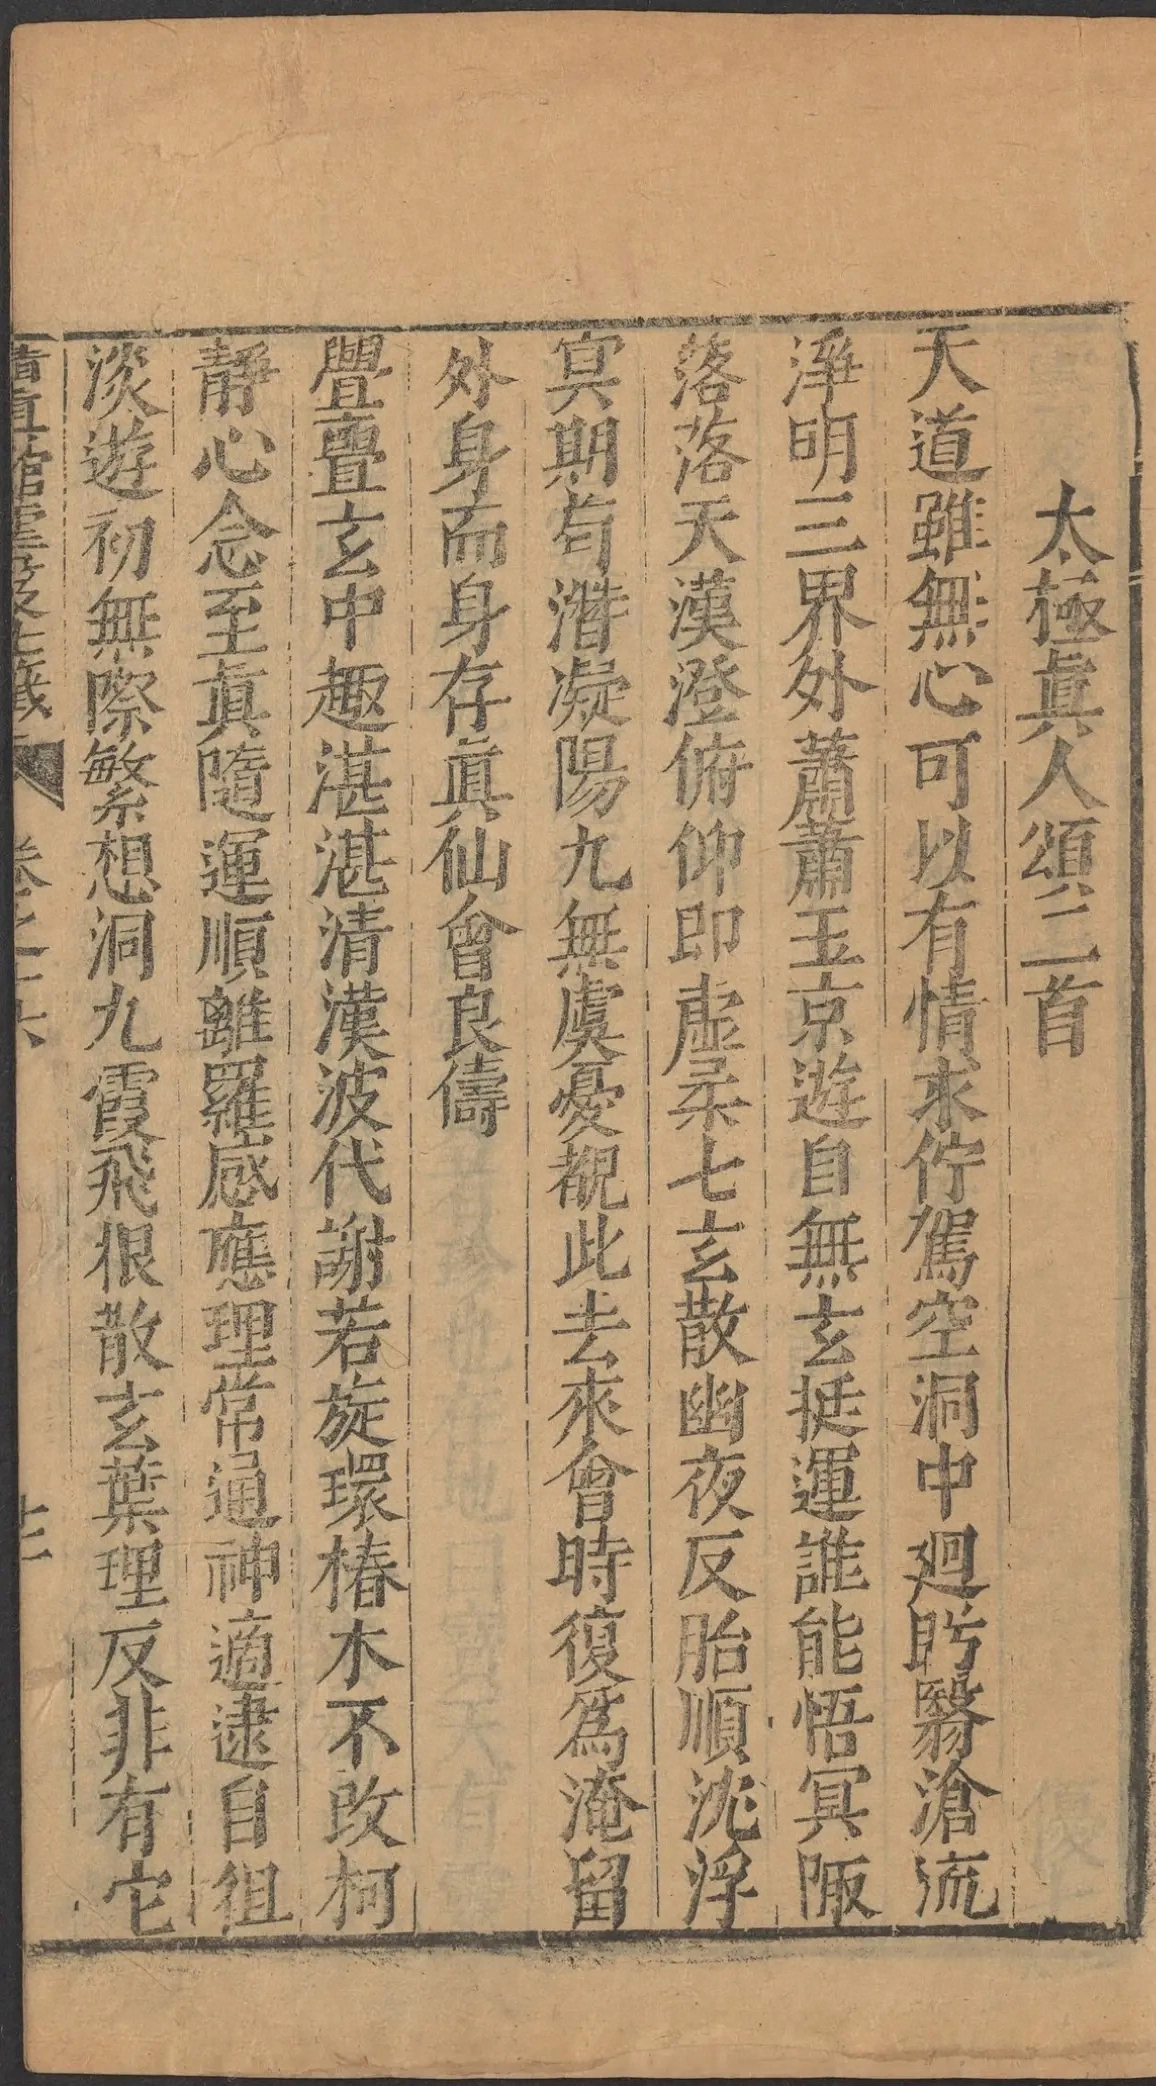 太極眞人頌二首
天道雖無心可以有情求佇駕空洞中迴眄翳滄流
淨明三界外蕭蕭玉京遊自無玄挺運誰能悟冥陬
落落天漢澄俯仰即虛柔七玄散幽夜反胎順沈浮
冥期苟潛凝陽九無虞憂覩此去來會時復爲淹留
外身而身存眞仙會良儔
疊疊玄中趣湛湛清漢波代謝若旋環椿木不改柯
靜心念至眞隨運順離羅感應理常通神適逮自徂
淡遊初無際繁想洞九霞飛根散玄葉理反非有它
清眞館雲笈七籤 卷之九十六 十二